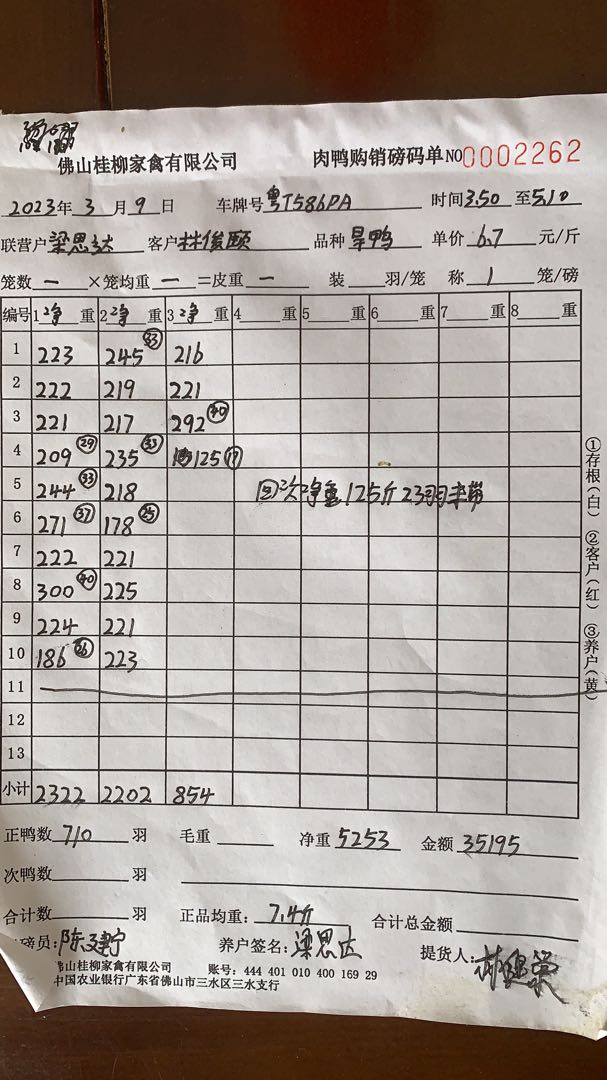 佛山桂柳家禽有限公司 肉鸭购销磅码单 NO0002262
2023年 3 月 9 日 车牌号 粤T586PA 时间3.50 至5.10
联营户 梁思达 客户 林俊颐 品种 旱鸭 单价 6.7 元/斤
笼数 一 ×笼均重 一 =皮重 一 装 羽/笼 称 1 笼/磅
编号 1净重 2净重 3净重 4 重 5 重 6 重 7 重 8 重
1 223 245 33 216
2 222 219 221
3 221 217 292 40
4 209 29 235 33 125 17
5 244 33 218
6 271 37 178 25
7 222 221
8 300 40 225
9 224 221
10 186 26 223
11
12
13
小计 2322 2202 854
次净重125斤 23羽
①存根(白) ②客户(红) ③养户(黄)
正鸭数 710 羽 毛重 净重 5253 金额 35195
次鸭数 羽
合计数 羽 正品均重: 7.4斤 合计总金额
磅员: 养户签名: 梁思达 提货人:
佛山桂柳家禽有限公司 账号: 444 401 010 400 169 29
中国农业银行广东省佛山市三水区三水支行